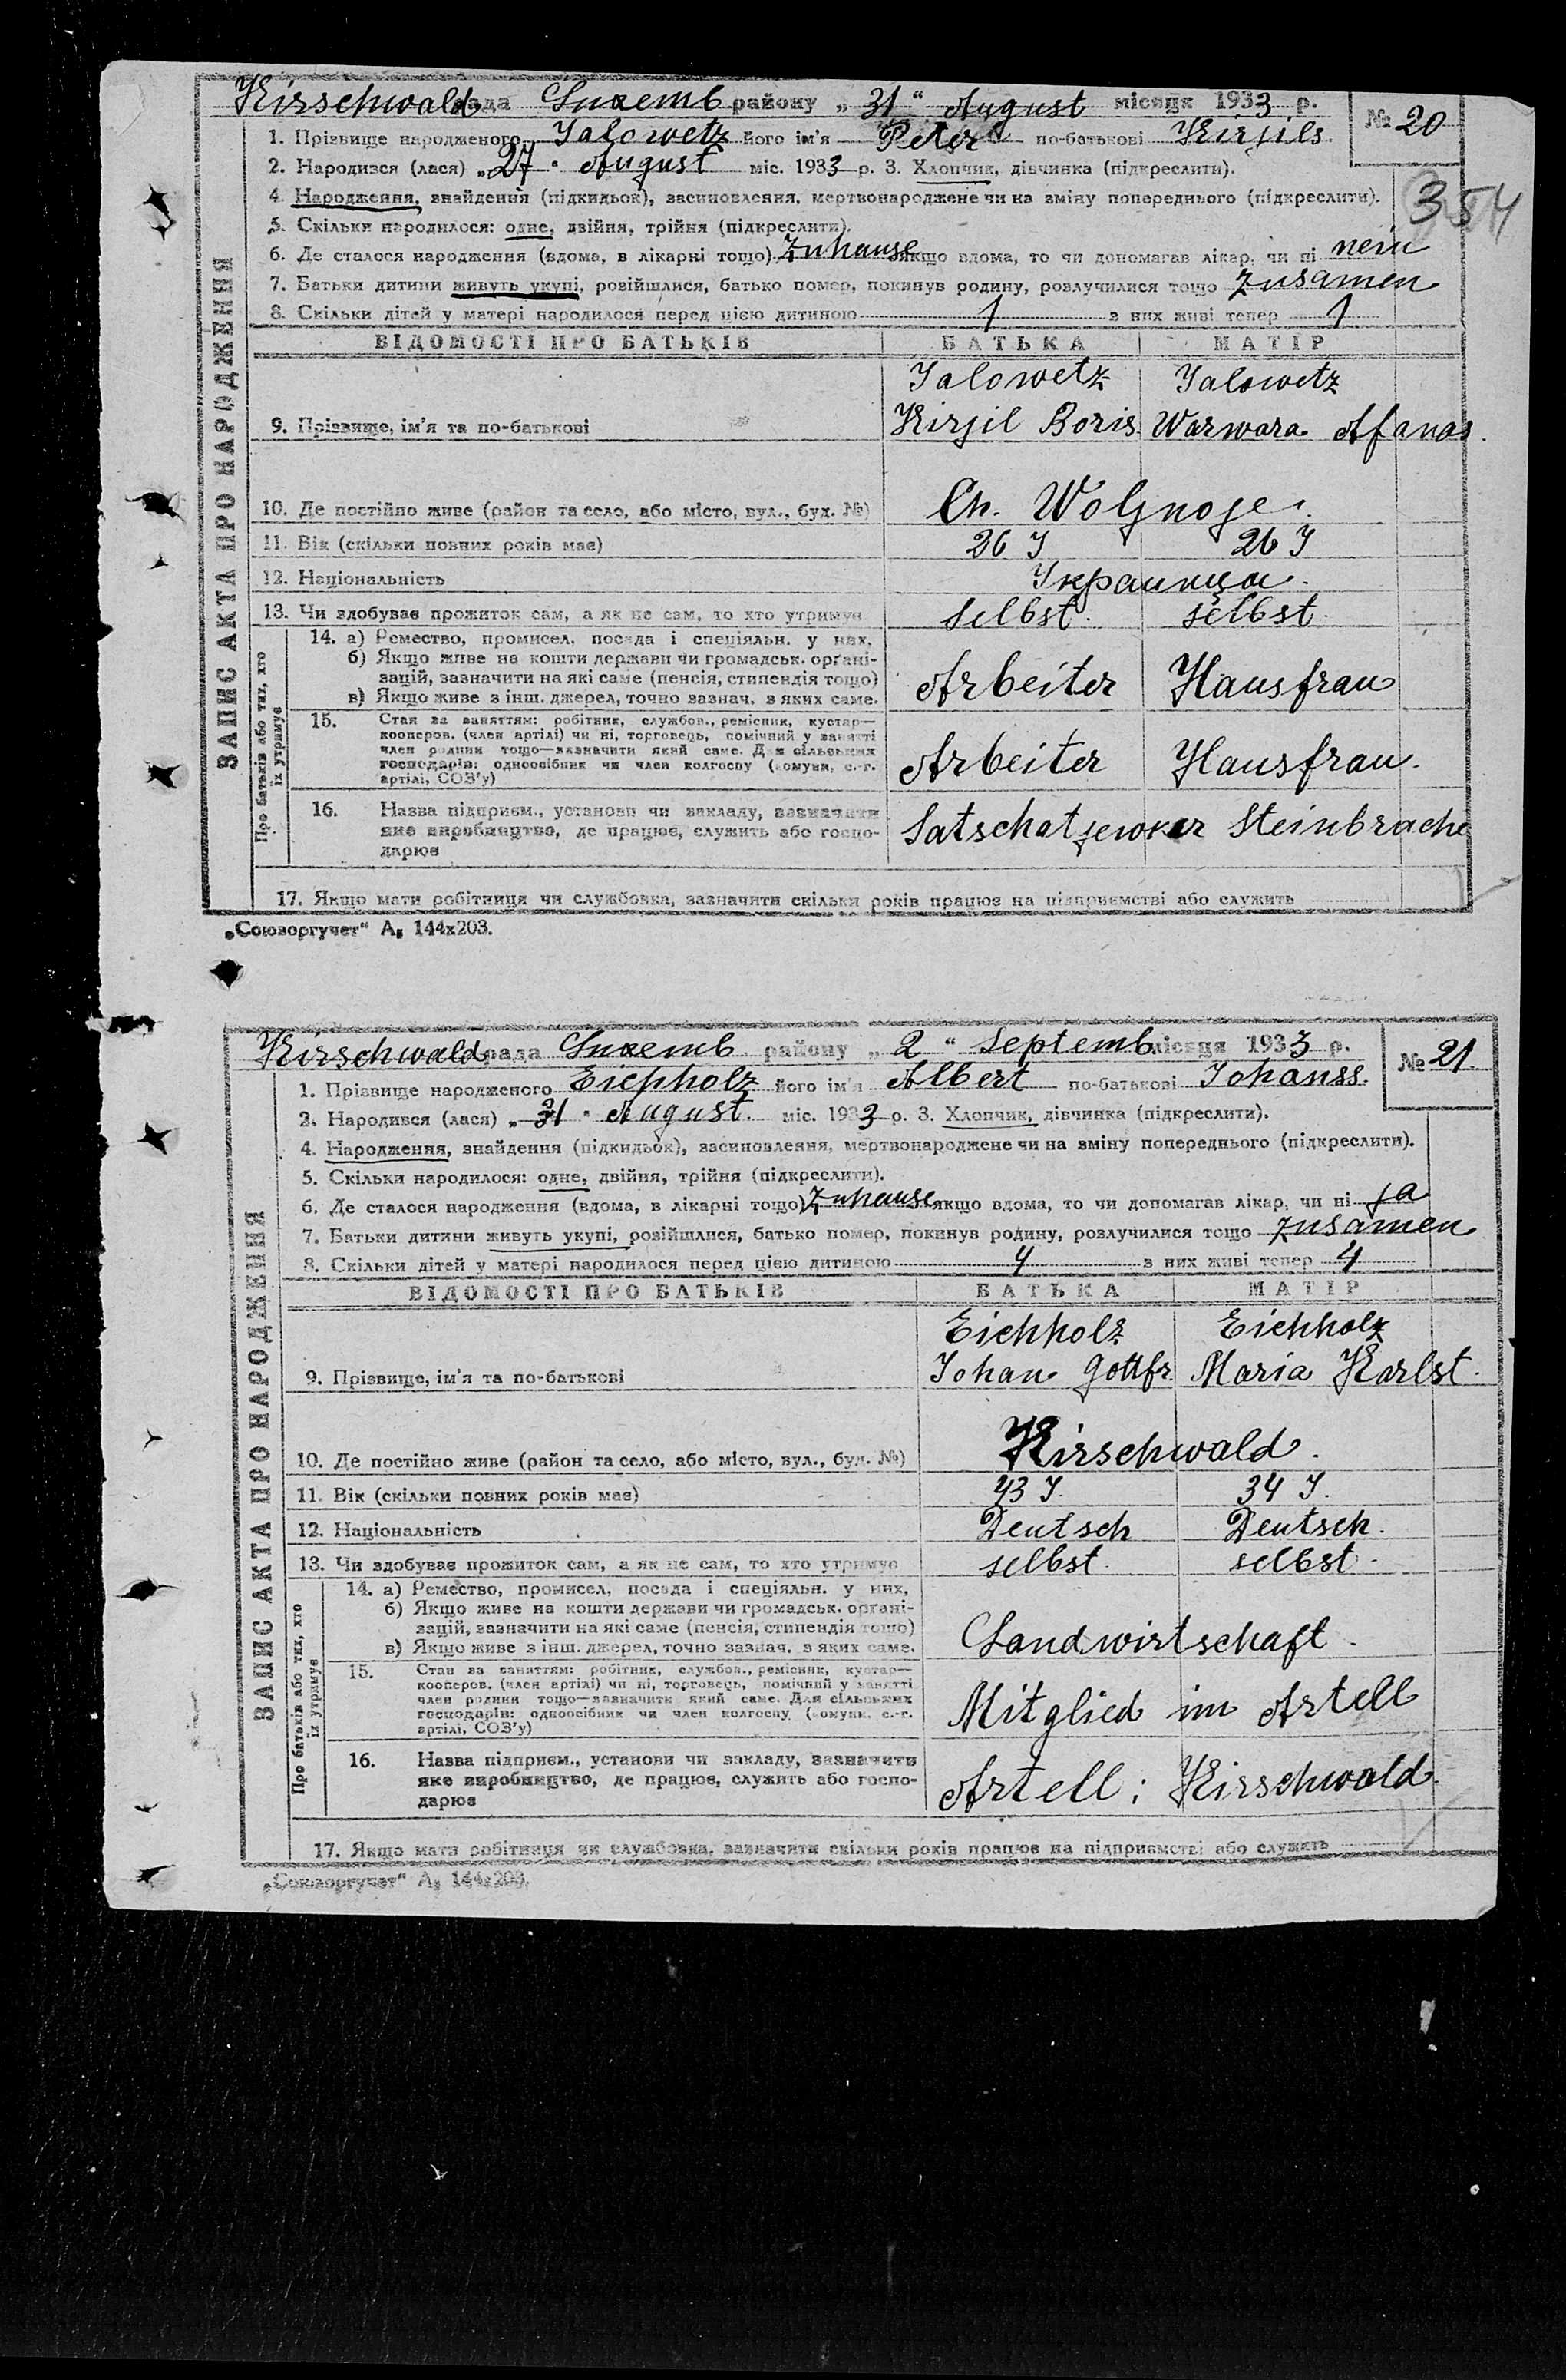 Kirschwald рада Luxemb району „ 31 “ August місяця 1933 р.
№ 20
1. Прізвище народженого Jalowetz його ім'я Peter по-батькові Kirjils
2. Народився (лася) „ 27 “ August міс. 1933 р. 3. Хлопчик, дівчинка (підкреслити).
354
4. Народження, знайдення (підкидьок), засиновлення, мертвонароджене чи на зміну попереднього (підкреслити).
5. Скільки народилося: одне, двійня, трійня (підкреслити).
6. Де сталося народження (вдома, в лікарні тощо) Zuhause якщо вдома, то чи допомагав лікар, чи ні nein
7. Батьки дитини живуть укупі, розійшлися, батько помер, покинув родину, розлучилися тощо zusamen
8. Скільки дітей у матері народилося перед цією дитиною 1 з них живі тепер 1
ЗАПИС АКТА ПРО НАРОДЖЕННЯ
ВІДОМОСТІ ПРО БАТЬКІВ БАТЬКА МАТІР
Jalowetz Jalowetz
9. Прізвище, ім'я та по-батькові Kirjil Boris Warwara Afanas.
10. Де постійно живе (район та село, або місто, вул., буд. №) Ch. Woljnoje.
11. Вік (скільки повних років має) 26 J 26 J
12. Національність Украинцы.
13. Чи здобуває прожиток сам, а як не сам, то хто утримує selbst. selbst.
Про батьків або тих, хто їх утримує
14. а) Ремество, промисел, посада і спеціяльн. у них.
б) Якщо живе на кошти держави чи громадськ. органі-
зацій, зазначити на які саме (пенсія, стипендія тощо) Arbeiter Hausfrau
в) Якщо живе з інш. джерел, точно зазнач. з яких саме.
15. Стан за заняттям: робітник, службов., ремісник, кустар—
кооперов. (член артілі) чи ні, торговець, помічний у занятті
член родини тощо—зазначити який саме. Для сільських
господарів: одноосібник чи член колгоспу (комуни, с.-г. Arbeiter Hausfrau.
артілі, СОЗ'у)
16. Назва підприєм., установи чи закладу, зазначити
яке виробництво, де працює, служить або госпо- Satschatjewker Steinbrache
дарює
17. Якщо мати робітниця чи службовка, зазначити скільки років працює на підприємстві або служить
„Союзоргучет“ А₅ 144x203.
Kirschwald рада Luxemb району „ 2 “ Septemb місяця 1933 р.
№ 21.
1. Прізвище народженого Eichholz його ім'я Albert по-батькові Johanss.
2. Народився (лася) „ 31 “ August. міс. 1933 р. 3. Хлопчик, дівчинка (підкреслити).
4. Народження, знайдення (підкидьок), засиновлення, мертвонароджене чи на зміну попереднього (підкреслити).
5. Скільки народилося: одне, двійня, трійня (підкреслити).
6. Де сталося народження (вдома, в лікарні тощо) Zuhause якщо вдома, то чи допомагав лікар, чи ні ja
7. Батьки дитини живуть укупі, розійшлися, батько помер, покинув родину, розлучилися тощо zusamen
8. Скільки дітей у матері народилося перед цією дитиною 4 з них живі тепер 4
ЗАПИС АКТА ПРО НАРОДЖЕННЯ
ВІДОМОСТІ ПРО БАТЬКІВ БАТЬКА МАТІР
Eichholz Eichholz
9. Прізвище, ім'я та по-батькові Johan Gottfr. Maria Karlst.
10. Де постійно живе (район та село, або місто, вул., буд. №) Kirschwald.
11. Вік (скільки повних років має) 43 J. 34 J.
12. Національність Deutsch Deutsch.
13. Чи здобуває прожиток сам, а як не сам, то хто утримує selbst. selbst.
Про батьків або тих, хто їх утримує
14. а) Ремество, промисел, посада і спеціяльн. у них,
б) Якщо живе на кошти держави чи громадськ. органі-
зацій, зазначити на які саме (пенсія, стипендія тощо) Landwirtschaft.
в) Якщо живе з інш. джерел, точно зазнач. з яких саме.
15. Стан за заняттям: робітник, службов., ремісник, кустар—
кооперов. (член артілі) чи ні, торговець, помічний у занятті
член родини тощо—зазначити який саме. Для сільських
господарів: одноосібник чи член колгоспу (комуни, с.-г. Mitglied im Artell
артілі, СОЗ'у)
16. Назва підприєм., установи чи закладу, зазначити
яке виробництво, де працює, служить або госпо- Artell: Kirschwald.
дарює
17. Якщо мати робітниця чи службовка, зазначити скільки років працює на підприємстві або служить
„Союзоргучет“ А₅ 144x203.